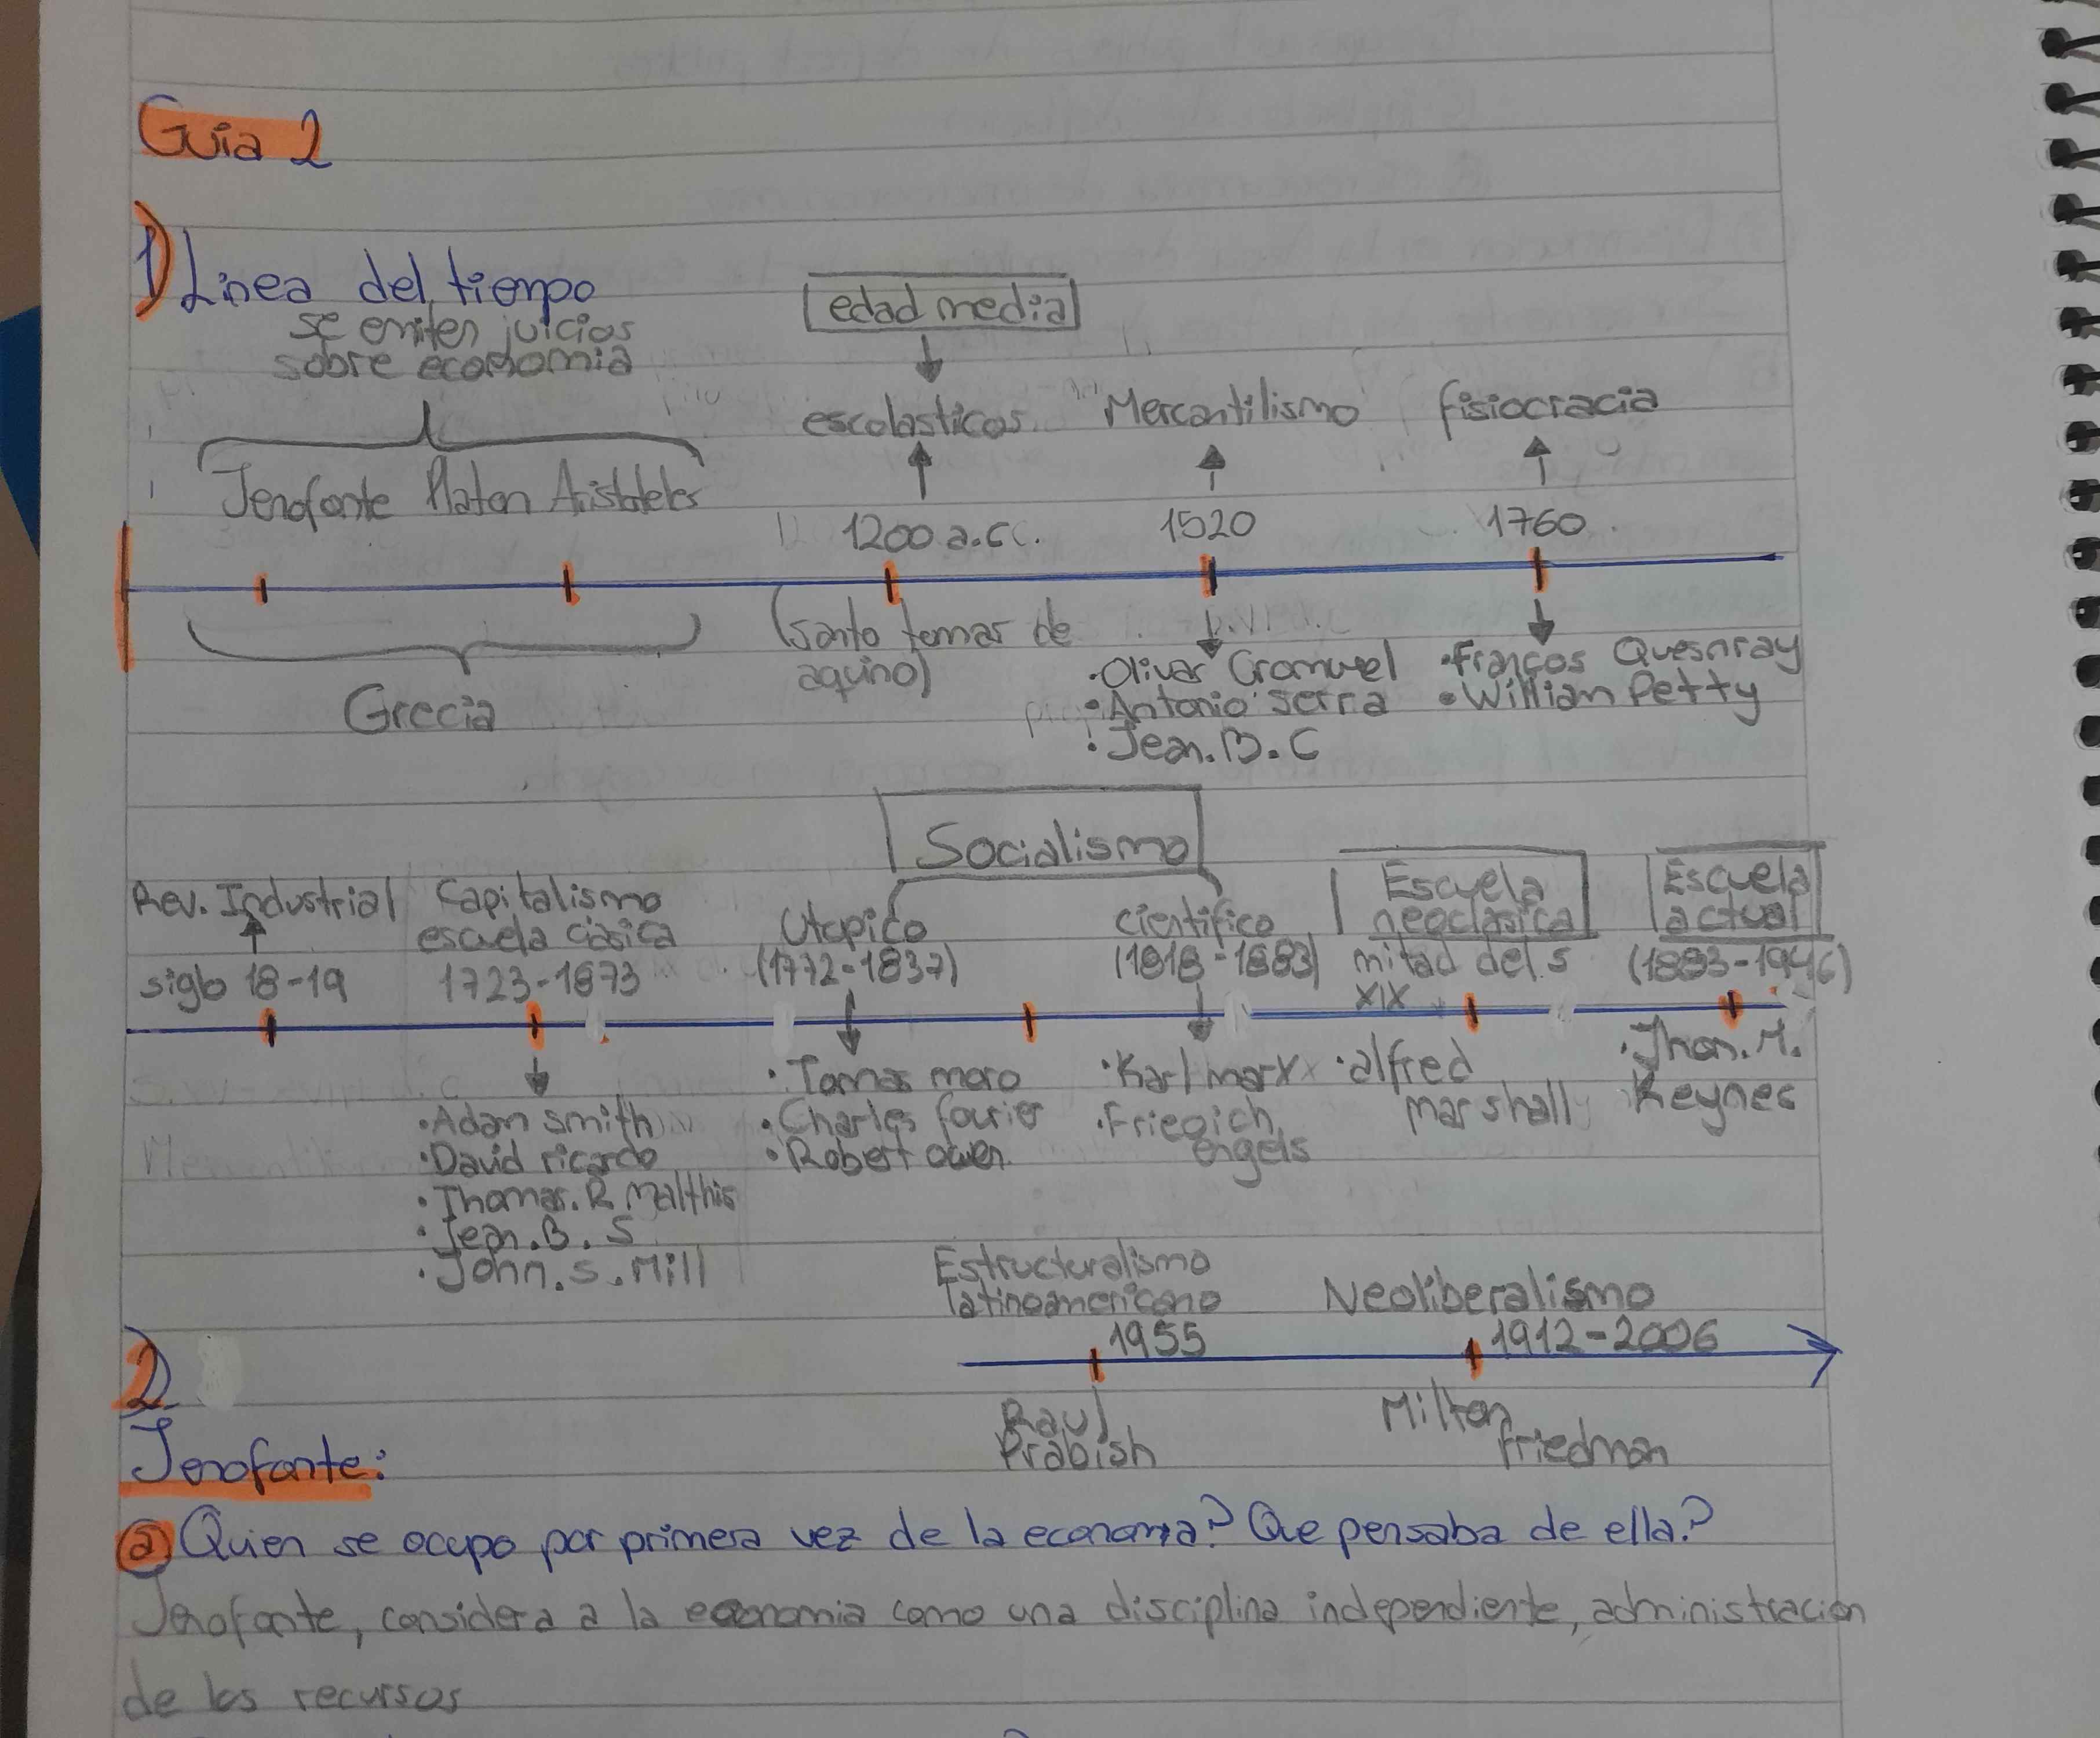 Guia 2
1) Linea del tiempo
se emiten juicios
sobre economia
edad media
escolasticos Mercantilismo fisiocracia
Jenofonte Platon Aristoteles
1200 a.c. 1520 1760
(santo tomas de
aquino)
Grecia
• Olivar Cromwel
• Antonio serra
• Jean. B. C
• Françcos Quesnray
• Willian Petty
Socialismo
Rev. Industrial
siglo 18-19
Capitalismo
escuela clasica
1723-1873
Utopico
(1772-1837)
cientifico
(1818-1883)
Escuela
neoclasica
mitad del s
XIX
Escuela
actual
(1883-1946)
• Adam smith
• David ricardo
• Thomas. R Malthis
• Jean. B. S
• John. S. Mill
• Tomas moro
• Charles fourier
• Robert owen.
• Karl marx
• Friegich
engels
• alfred
marshall
• Jhon. M.
Keynes
Estructuralismo
latinoamericano
1955
Neoliberalismo
1912-2006
Raul
Prabish
Milton
friedman
2)
Jenofonte:
a) Quien se ocupo por primera vez de la economia? Que pensaba de ella?
Jenofonte, considera a la economia como una disciplina independiente, administracion
de los recursos